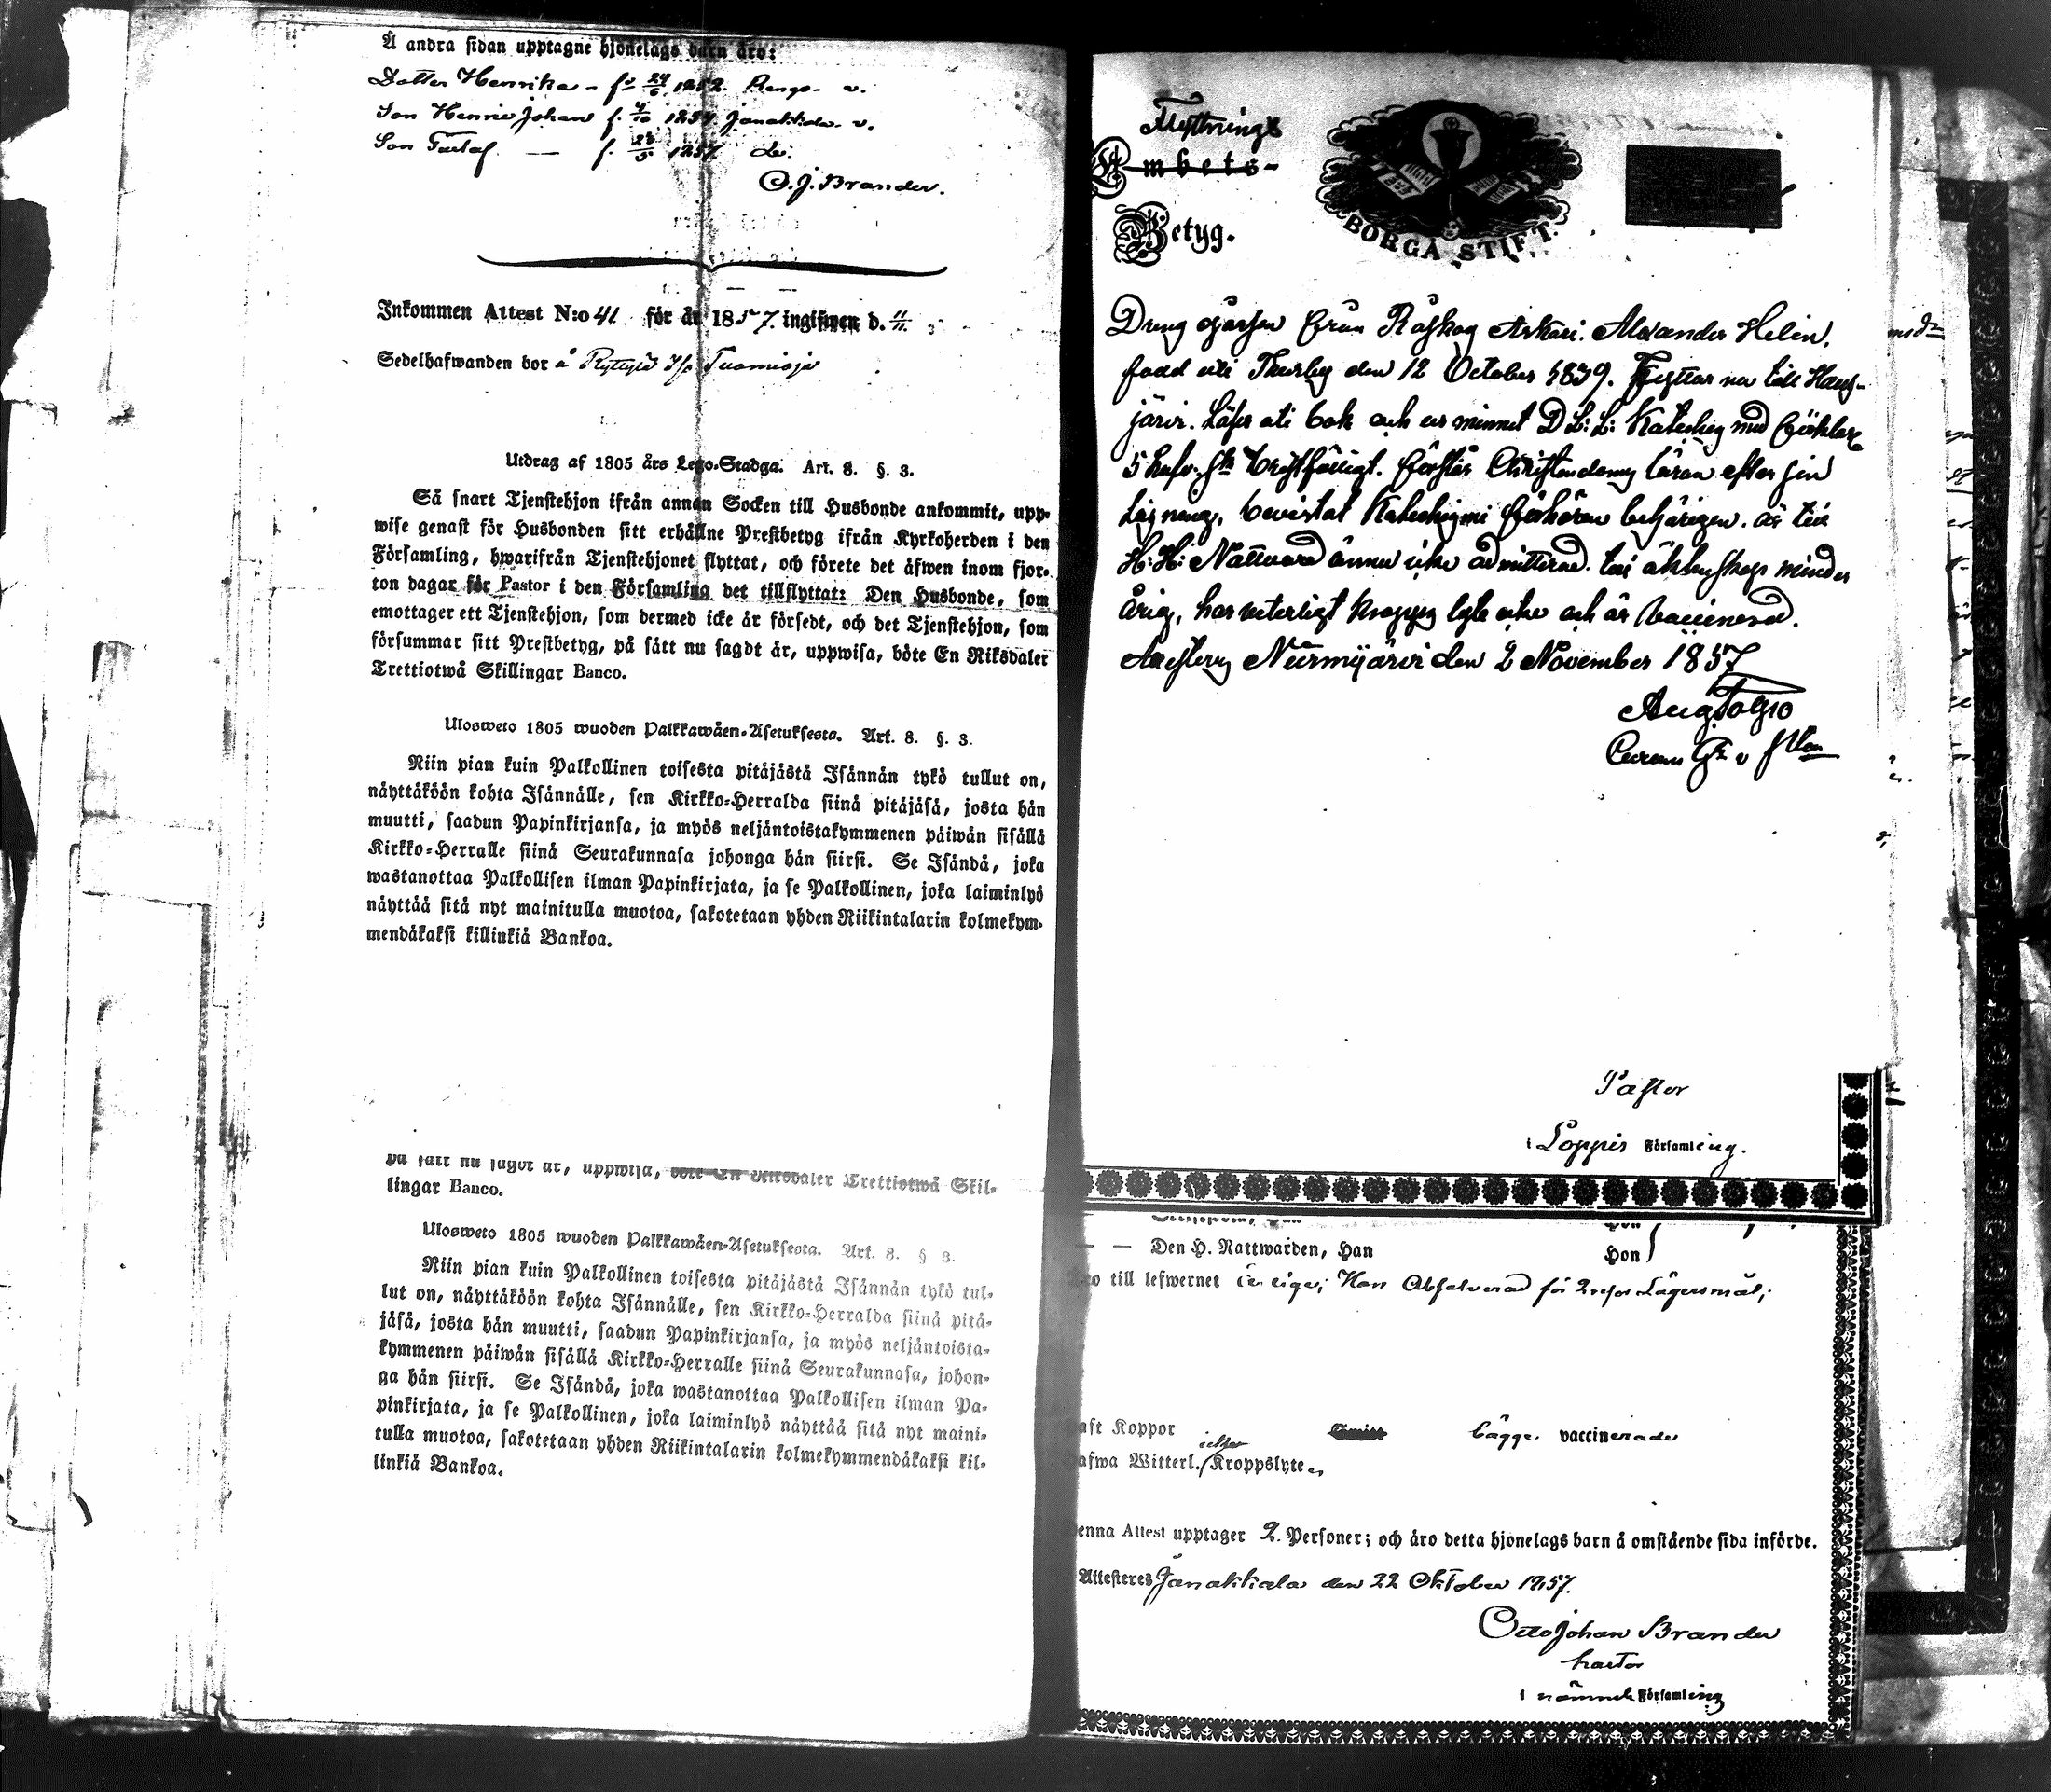 Å andra sidan upptagne hjonelags barn äro:
Dotter Henrika - f. 24/6 1852. Rengo - v.
Son Henric Johan f. 4/10 1854. Janakkala - v.
Son Gustaf — f. 28/5 1857. do.
O. J. Brander.
Inkommen Attest N:o 41 för år 1857. ingifwen d. 11/11.
Sedelhafwanden bor å Ryttylä Tuomioja
Utdrag af 1805 års Lego-Stadga. Art. 8. §. 3.
Så snart Tjenstehjon ifrån annan Socken till Husbonde ankommit, upp-
wise genast för Husbonden sitt erhållne Prestbetyg ifrån Kyrkoherden i den
Församling, hwarifrån Tjenstehjonet flyttat, och förete det äfwen inom fjor-
ton dagar för Pastor i den Församling det tillflyttat: Den Husbonde, som
emottager ett Tjenstehjon, som dermed icke är försedt, och det Tjenstehjon, som
försummar sitt Prestbetyg, på sätt nu sagdt är, uppwisa, böte En Riksdaler
Trettiotwå Skillingar Banco.
Ulosweto 1805 wuoden Palkkawäen-Asetuksesta. Art. 8. §. 3.
Niin pian kuin Palkollinen toisesta pitäjästä Isännän tykö tullut on,
näyttäköön kohta Isännälle, sen Kirkko-Herralda siinä pitäjäsä, josta hän
muutti, saadun Papinkirjansa, ja myös neljäntoistakymmenen päiwän sisällä
Kirkko-Herralle siinä Seurakunnasa johonga hän siirsi. Se Isändä, joka
wastanottaa Palkollisen ilman Papinkirjata, ja se Palkollinen, joka laiminlyö
näyttää sitä nyt mainitulla muotoa, sakotetaan yhden Riikintalarin kolmekym-
mendäkaksi killinkiä Bankoa.
på sätt nu sagdt är, uppwisa, böte En Riksdaler Trettiotwå Skil-
lingar Banco.
Ulosweto 1805 wuoden Palkkawäen-Asetuksesta. Art. 8. § 3.
Niin pian kuin Palkollinen toisesta pitäjästä Isännän tykö tul-
lut on, näyttäköön kohta Isännälle, sen Kirkko-Herralda siinä pitä-
jäsä, josta hän muutti, saadun Papinkirjansa, ja myös neljäntoista-
kymmenen päiwän sisällä Kirkko-Herralle siinä Seurakunnasa, johon-
ga hän siirsi. Se Isändä, joka wastanottaa Palkollisen ilman Pa-
pinkirjata, ja se Palkollinen, joka laiminlyö näyttää sitä nyt maini-
tulla muotoa, sakotetaan yhden Riikintalarin kolmekymmendäkaksi kil-
linkiä Bankoa.
Flyttnings
Embets-
Betyg.
BORGÅ STIFT.
Dreng gossen från Råskog Alexander Helin,
född uti Thusby den 12 October 1839. Flyttar nu till Haus-
järvi. Läser uti bok och ur minnet D L: L: Kateches med förklar
5 Hufv. st. bristfälligt. förstår Christendoms läran efter sin
läsning, bevistat Katechismi förhören behörigen. är till
H: H: Nattvard ännu icke admitterad. till äktenskap minder
årig, har veterligt kropps lyte icke och är vaccinerad.
Attesteras Nurmijärvi den 2 November 1857
Pastor
i Loppis Församling.
— — Den H. Nattwarden, Han
Hon
till lefwernet ärlige; Han Absolverad för Lägersmål;
haft Koppor bägge vaccinerade
hafwa Witterl. icke Kroppslyte
Denna Attest upptager 2 Personer; och äro detta hjonelags barn å omstående sida införde.
Attesteres Janakkala den 22 Oktober 1857.
Otto Johan Brander
Pastor
i nämnde Församling